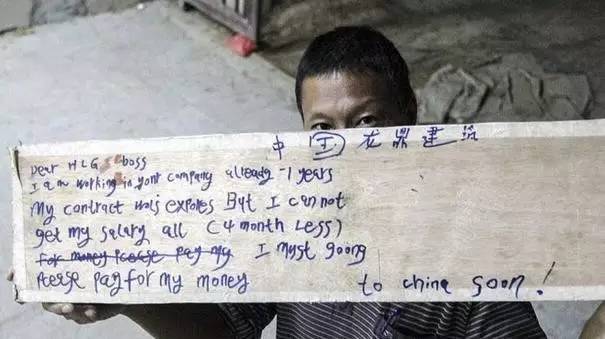 中国龙鼎建筑
Dear HLG boss
I am working in yont company already -1 years
My contract wals expores But I can not
get my salary all (4 month Less)
for money Plcese pay my I myst goong
Plcese pay for my money to china soon!